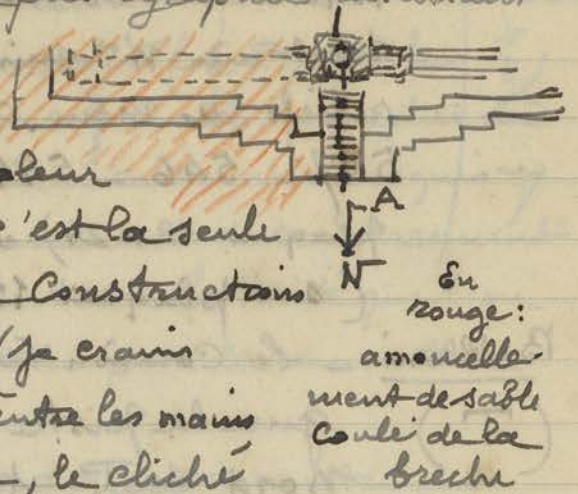 A
N
aleur
c'est la seule
Constructions
je crains
entre les mains
, le cliché
En
rouge:
amoncelle-
ment de sable
coulé de la
breche